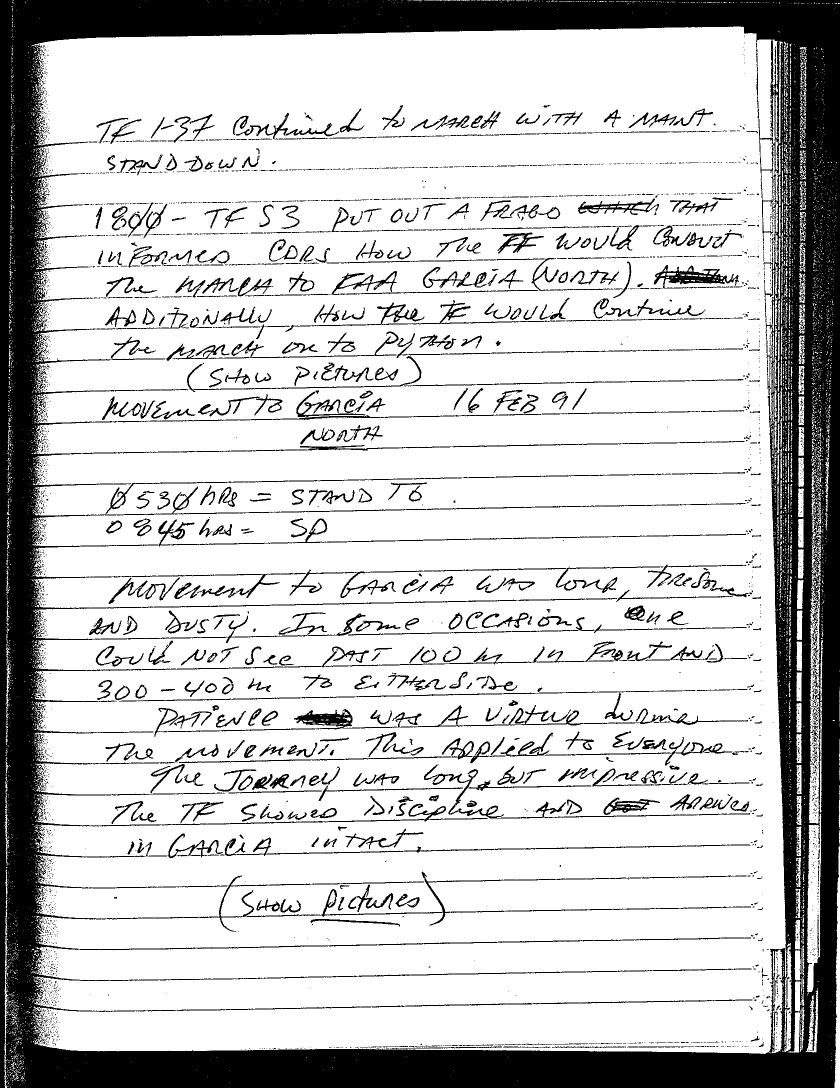 TF 1-37 Continued to MARCH WITH A MAINT.
STAND-DOWN.
1800 - TF S3 PUT OUT A FRAGO WHICH THAT
INFORMED CDRS HOW THE TF WOULD CONDUCT
THE MARCH TO FAA GARCIA (NORTH).
ADDITIONALLY, HOW THE TF WOULD Continue
the MARCH on to PYTHON.
(SHOW PICTURES)
MOVEMENT TO GARCIA 16 FEB 91
NORTH
0530 hRS = STAND TO.
0845 hRS = SP
MOVEMENT to GARCIA WAS LONG, TIRESOME
AND DUSTY. In Some OCCASIONS, One
COULD NOT See PAST 100 m IN Front AND
300-400 m TO EITHER SIDE.
PATIENCE WAS A VIRTUE DURING
THE MOVEMENT. This Applied to Everyone.
The JOURNEY WAS Long, BUT impressive.
The TF Showed Discipline AND ARRIVED
in GARCIA intact.
(SHOW Pictures)